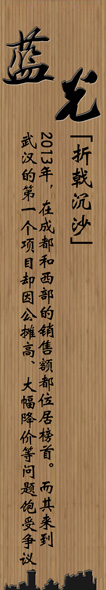 蓝光
「折戟沉沙」
2013年，在成都和西部的销售额都位居榜首。而其来到
武汉的第一个项目却因公摊高、大幅降价等问题饱受争议